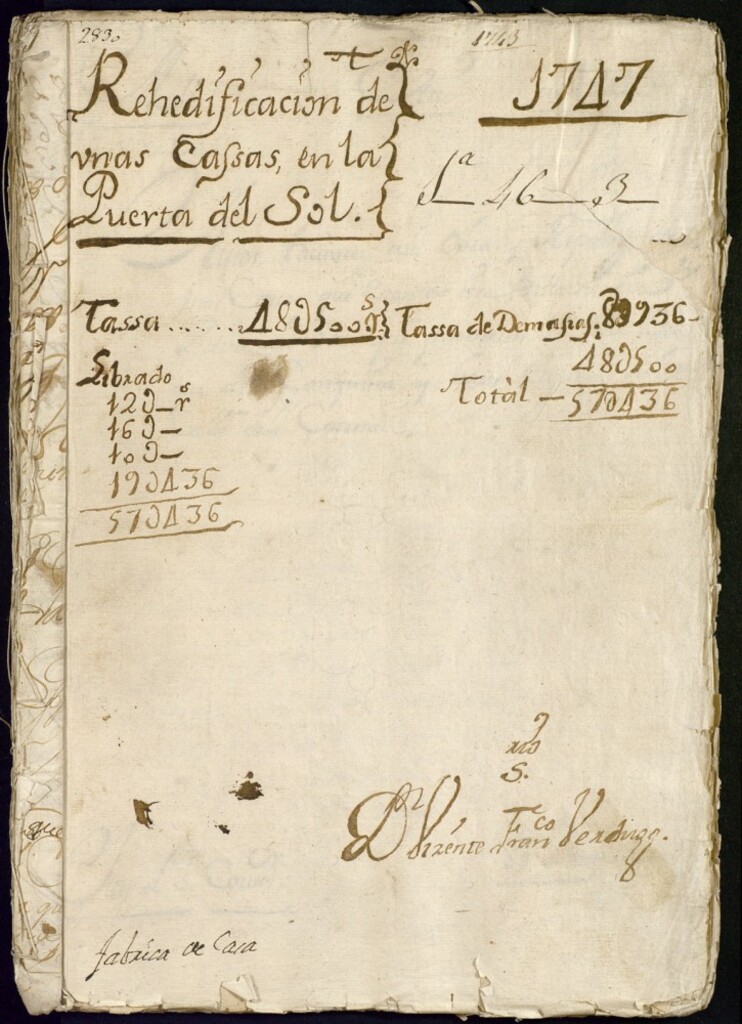 283
1743
Rehedificacion de
1747
vnas Cassas, en la
Puerta del Sol.
La 46 3
Tassa ........ 48U500 rs
Tassa de Demasias. 8U936
48U500
Total — 57U436
Librado
12U— rs
16U—
10U—
19U436
57U436
rio
S.
Dn Vizente Franco Verdugo.
fabrica de Casa